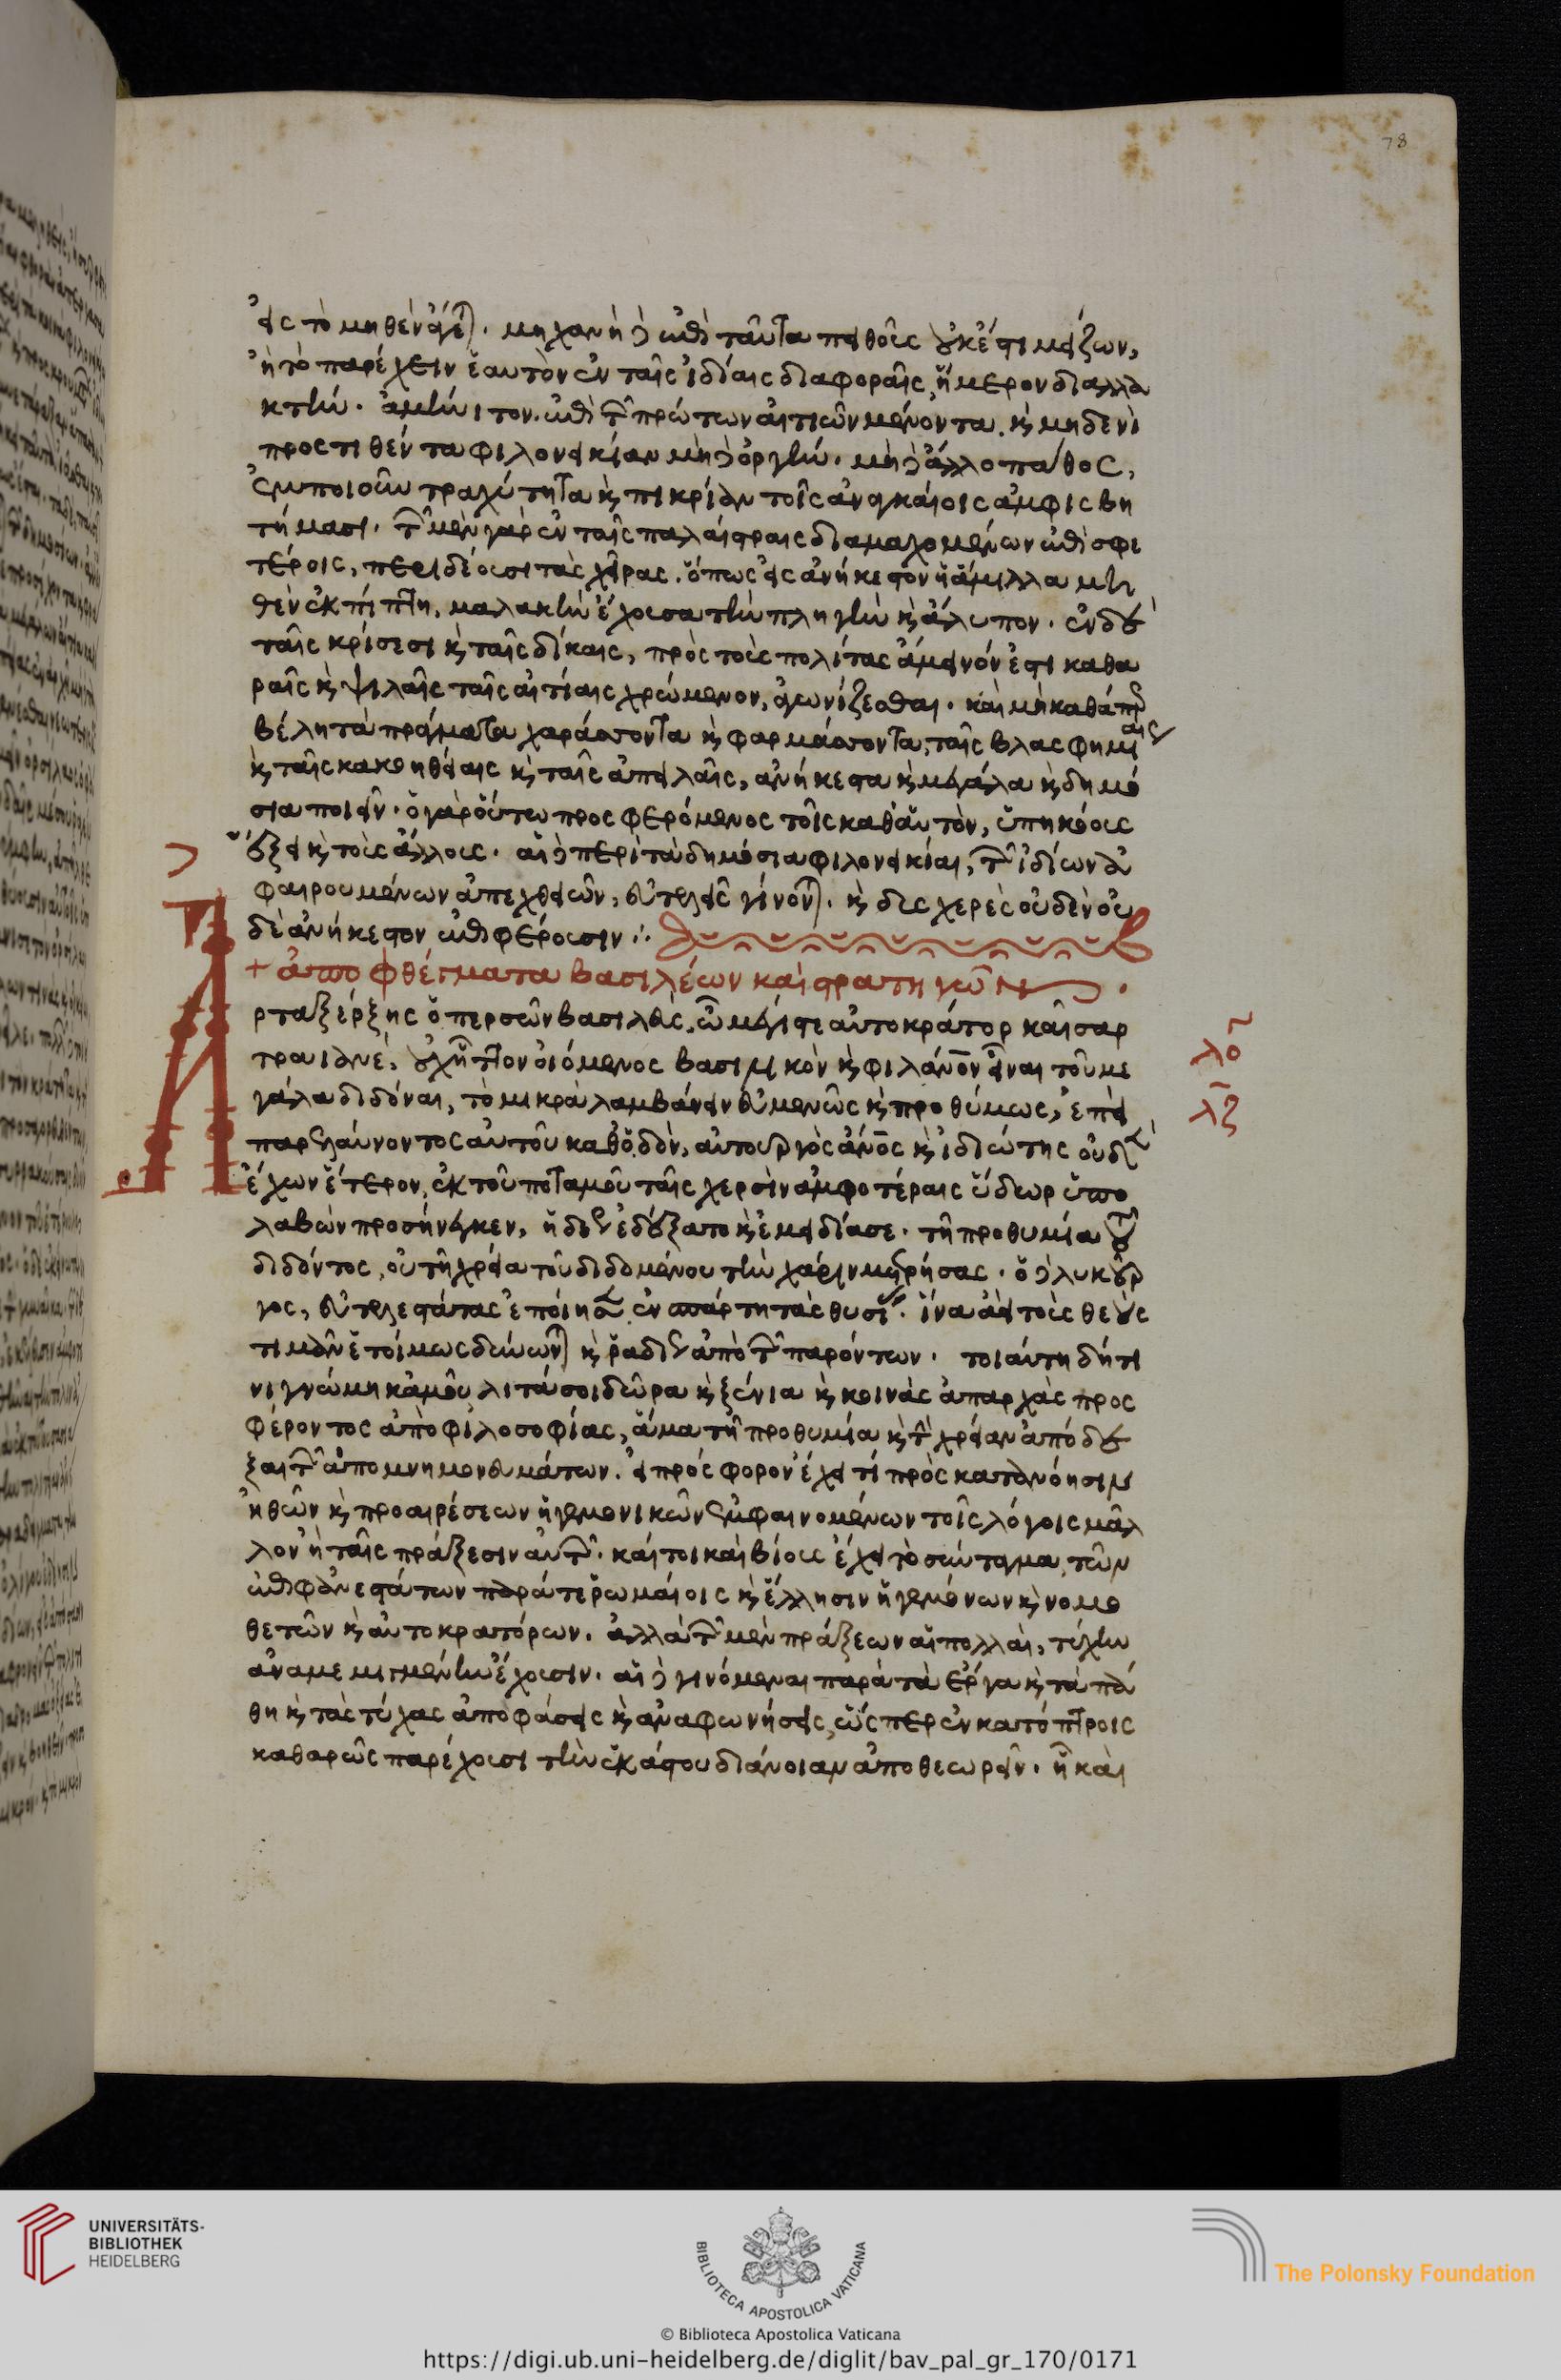 78
εἰς τὸ μηθὲν ἄγεται. μηχανὴ δὲ ἐπὶ ταῦτα πειθοῦς οὐκ ἔστι μείζων,
ἢ τὸ παρέχειν ἑαυτὸν ἐν ταῖς ἰδίαις διαφοραῖς, ἥμερον διαλλα
κτήν. ἀμήνιτον. ἐπὶ τῶν πρώτων αἰτιῶν μένοντα. καὶ μηδενὶ
προστιθέντα φιλονεικίαν μὴ δὲ ὀργήν. μὴ δὲ ἄλλο πάθος,
ἐμποιοῦν τραχύτητα καὶ πικρίαν τοῖς ἀναγκαίοις ἀμφισβη
τήμασι. τῶν μὲν γὰρ ἐν ταῖς παλαίστραις διαμαχομένων ἐπὶ σφι
τέροις, περιδέουσι τὰς χεῖρας. ὅπως εἰς ἀνήκεστον ἡ ἅμιλλα μη
θὲν ἐκπίπτη, μαλακὴν ἔχουσα τὴν πληγὴν καὶ ἄλυπον. ἐν δὲ
ταῖς κρίσεσι καὶ ταῖς δίκαις, πρὸς τοὺς πολίτας ἄμεινόν ἐστι καθα
ραῖς καὶ ψιλαῖς ταῖς αἰτίαις χρώμενον, ἀγωνίζεσθαι. καὶ μὴ καθάπερ
βέλη τὰ πράγματα χαράσσοντα καὶ φαρμάσσοντα, ταῖς βλασφημίαις
καὶ ταῖς κακοηθείαις καὶ ταῖς ἀπειλαῖς, ἀνήκεστα καὶ μεγάλα καὶ δημό
σια ποιεῖν. ὁ γὰρ οὕτω προσφερόμενος τοῖς καθ' αὑτὸν, ὑπηκόους
ἕξει καὶ τοὺς ἄλλους. αἱ δὲ περὶ τὰ δημόσια φιλονεικίαι, τῶν ἰδίων ἀ
φαιρουμένων ἀπεχθειῶν, εὐτελεῖς γίνονται. καὶ δυσχερὲς οὐδὲν οὐ
δὲ ἀνήκεστον ἐπιφέρουσιν :
+ ἀποφθέγματα βασιλέων καὶ στρατηγῶν.
Ἀρταξέρξης ὁ περσῶν βασιλεὺς, ὦ μέγιστε αὐτοκράτορ καῖσαρ
τραιανὲ, οὐχ ἧττον οἰόμενος βασιλικὸν καὶ φιλάνον εἶναι τοῦ με
γάλα διδόναι, τὸ μικρὰ λαμβάνειν εὐμενῶς καὶ προθύμως, ἐπεὶ
παρελαύνοντος αὐτοῦ καθ' ὁδὸν, αὐτουργὸς ἄνος καὶ ἰδιώτης οὐδὲν
ἔχων ἕτερον, ἐκ τοῦ ποταμοῦ ταῖς χερσὶν ἀμφοτέραις ὕδωρ ὑπο
λαβὼν προσήνεγκεν, ἡδέως ἐδέξατο καὶ ἐμειδίασε. τῆ προθυμία τοῦ
διδόντος, οὐ τῆ χρεία τοῦ διδομένου τὴν χάριν μετρήσας. ὁ δὲ λυκοῦρ
γος, εὐτελεστάτας ἐποίησεν ἐν σπάρτη τὰς θυσίας. ἵνα ἀεὶ τοὺς θεοὺς
τιμᾶν ἑτοίμως δύνωνται καὶ ῥαδίως ἀπὸ τῶν παρόντων. τοιαύτη δή τι
νι γνώμη κἀμοῦ λιτά σοι δῶρα καὶ ξένια καὶ κοινὰς ἀπαρχὰς προς
φέροντος ἀπὸ φιλοσοφίας, ἅμα τῆ προθυμία καὶ τὴν χρείαν ἀπόδε
ξαι τῶν ἀπομνημονευμάτων. εἰ πρόσφορον ἔχει τί πρὸς κατανόησιν
ἠθῶν καὶ προαιρέσεων ἡγεμονικῶν ἐμφαινομένων τοῖς λόγοις μᾶλ
λον ἢ ταῖς πράξεσιν αὐτῶν. καίτοι καὶ βίους ἔχει τὸ σύνταγμα, τῶν
ἐπιφανεστάτων παρά τε ῥωμαίοις καὶ ἕλλησιν ἡγεμόνων καὶ νομο
θετῶν καὶ αὐτοκρατόρων. ἀλλὰ τῶν μὲν πράξεων αἱ πολλαὶ, τύχην
ἀναμεμιγμένην ἔχουσιν. αἱ δὲ γινόμεναι παρὰ τὰ ἔργα καὶ τὰ πά
θη καὶ τὰς τύχας ἀποφάσεις καὶ ἀναφωνήσεις, ὥσπερ ἐν κατόπτροις
καθαρῶς παρέχουσι τὴν ἑκάστου διάνοιαν ἀποθεωρεῖν. ἧ καὶ
λο
λζ
UNIVERSITÄTS-
BIBLIOTHEK
HEIDELBERG
BIBLIOTECA APOSTOLICA VATICANA
The Polonsky Foundation
© Biblioteca Apostolica Vaticana
https://digi.ub.uni-heidelberg.de/diglit/bav_pal_gr_170/0171